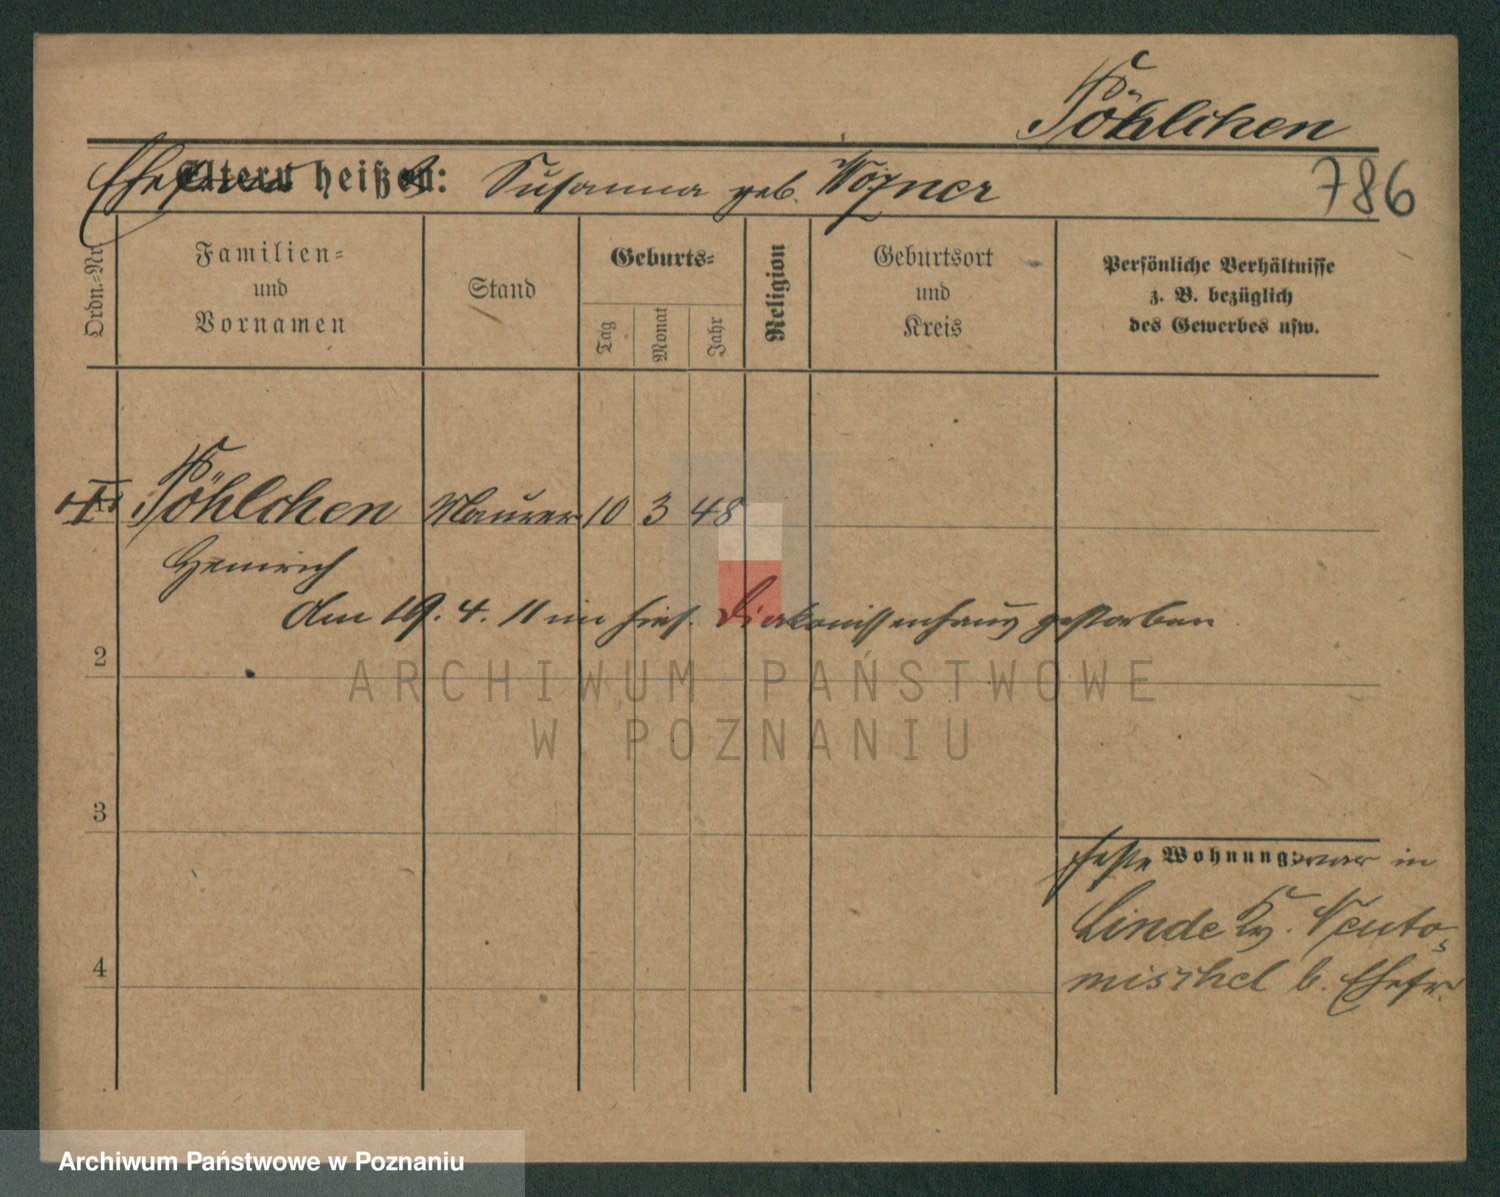 Pöhlchen
Ehefrau heißt: Susanna geb. Wozner
786
Ordn.-Nr.
Familien-
und
Vornamen
Stand
Geburts-
Tag
Monat
Jahr
Religion
Geburtsort
und
Kreis
Persönliche Verhältnisse
z. B. bezüglich
des Gewerbes usw.
Pöhlchen Maurer 10 3 48
Heinrich
Am 19. 4. 11 im hies. Diakonissenhaus gestorben
2
3
4
feste Wohnung: war in
Linde Kr. Neuto-
mischel b. Ehefr.
ARCHIWUM PAŃSTWOWE
W POZNANIU
Archiwum Państwowe w Poznaniu